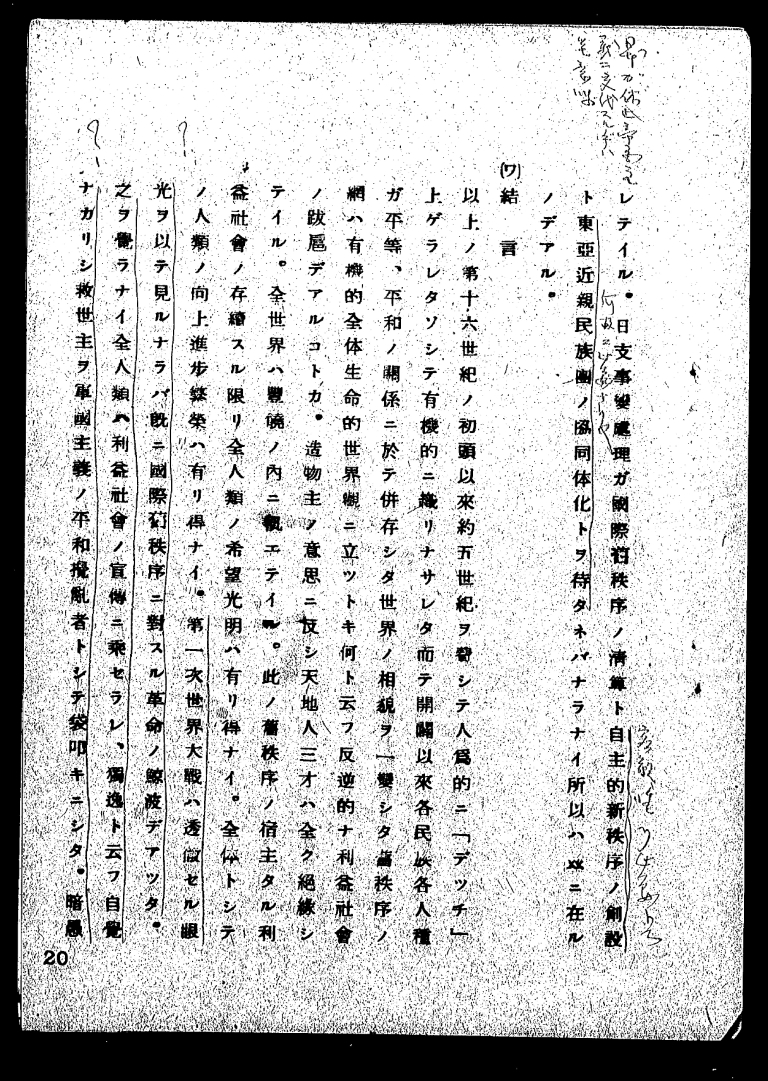 レテイル。日支事變處理ガ國際舊秩序ノ清算ト自主的新秩序ノ創設
ト東亞近親民族團ノ協同体化トヲ待タネバナラナイ所以ハ玆ニ在ル
ノデアル。
(ワ)結言
以上ノ第十六世紀ノ初頭以來約五世紀ヲ費シテ人爲的ニ「デツチ」
上ゲラレタソシテ有機的ニ織リナサレタ而テ開闢以來各民族各人種
ガ平等、平和ノ關係ニ於テ併存シタ世界ノ相貌ヲ一變シタ舊秩序ノ
網ハ有機的全体生命的世界觀ニ立ツトキ何ト云フ反逆的ナ利益社會
ノ跋扈デアルコトカ。造物主ノ意思ニ反シ天地人三才ハ全ク絕緣シ
テイル。全世界ハ豐饒ノ內ニ飢エテイル。此ノ舊秩序ノ宿主タル利
益社會ノ存續スル限リ全人類ノ希望光明ハ有リ得ナイ。全体トシテ
ノ人類ノ向上進步繁榮ハ有リ得ナイ。第一次世界大戰ハ透徹セル眼
光ヲ以テ見ルナラバ旣ニ國際舊秩序ニ對スル革命ノ鯨波デアツタ。
之ヲ覺ラナイ全人類ハ利益社會ノ宣傳ニ乘セラレ、獨逸ト云フ自覺
ナカリシ救世主ヲ軍國主義ノ平和攪亂者トシテ袋叩キニシタ。暗愚
20